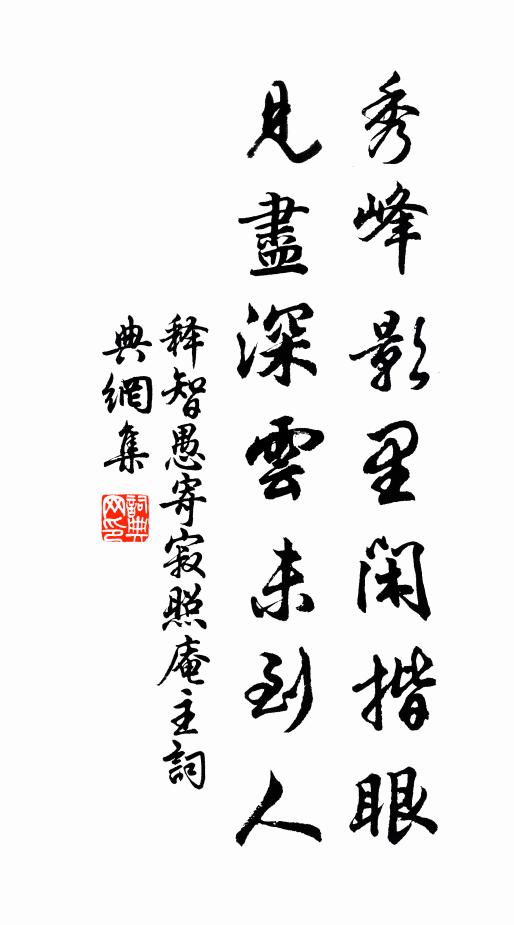 秀峰影里閑揩眼
見盡深雲未到人
释智愚寄寂照庵主詞
典網集
詞典网印